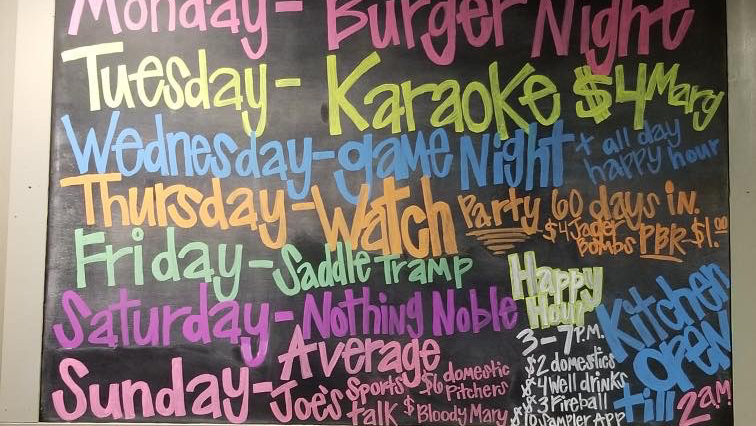 Monday- Burger Night
Tuesday- Karaoke $4 Mary
Wednesday-game Night + all day happy hour
Thursday-Watch Party 60 days in.
$4 Jager Bombs PBR $1.00
Friday-Saddle Tramp
Saturday-Nothing Noble
Sunday-Average Joes Sports talk
$6 domestic Pitchers
$ Bloody Mary
Happy Hour
3-7 P.M.
$2 domestics
$4 Well drinks
$3 Fireball
$10 Sampler App
Kitchen OPEN till 2am